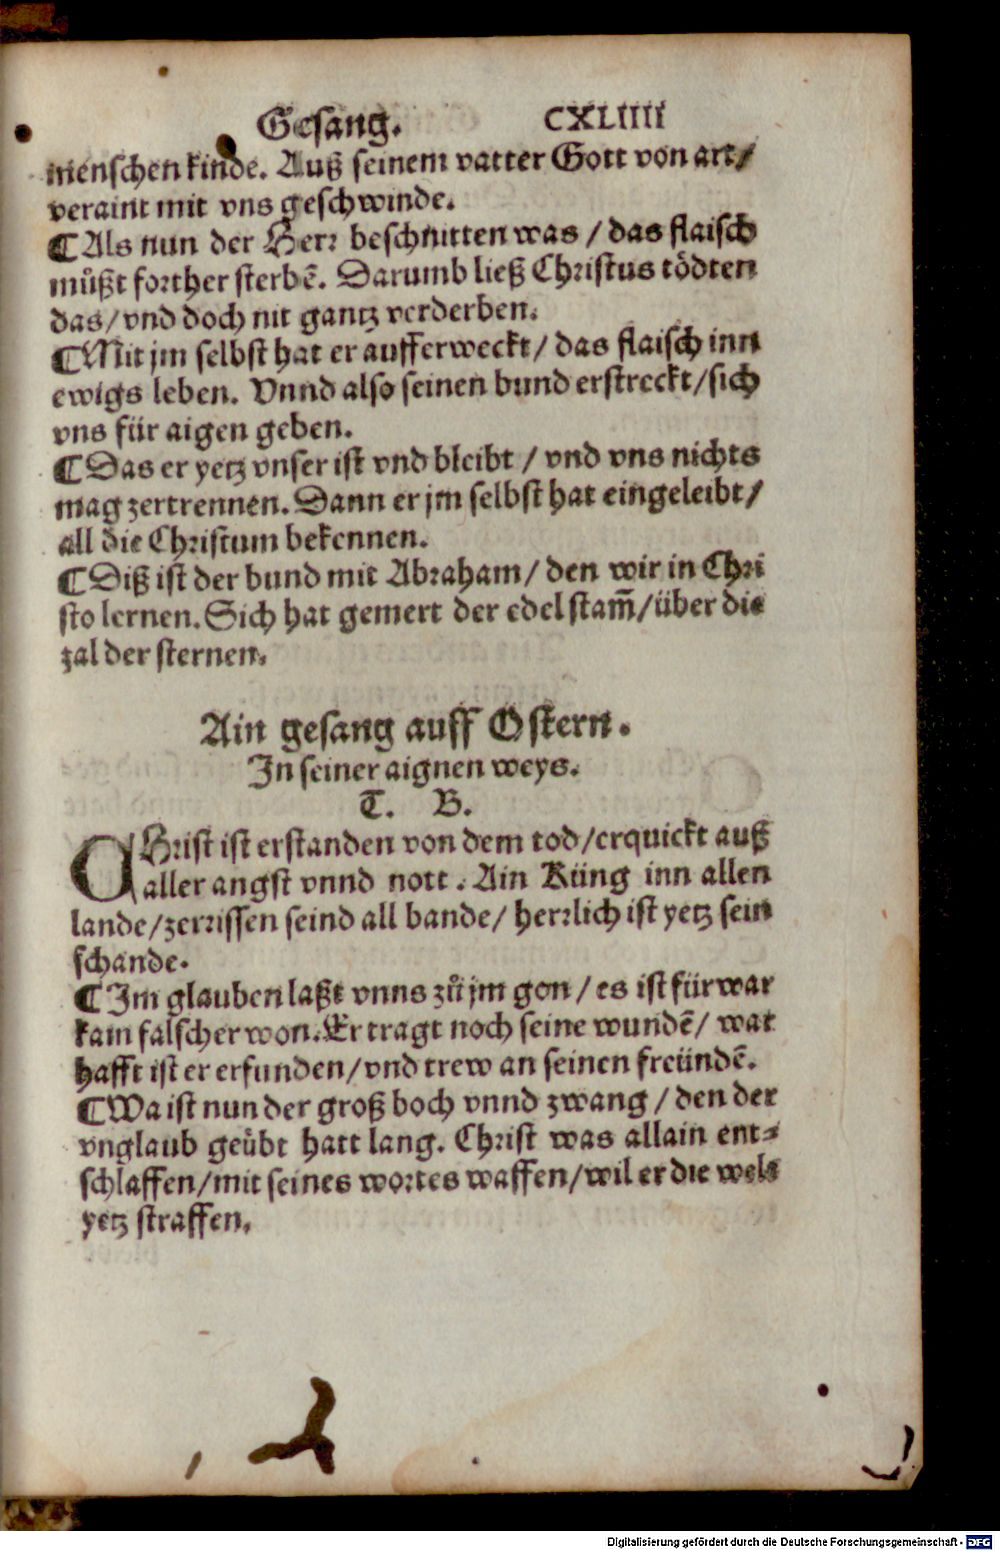 Gesang. CXLIIII
menschen kinde. Auß seinem vatter Gott von art/
veraint mit vns geschwinde.
¶ Als nun der Herr beschnitten was / das flaisch
můßt forther sterbē. Darumb ließ Christus tödten
das/vnd doch nit gantz verderben.
¶ Mit jm selbst hat er aufferweckt/ das flaisch inn
ewigs leben. Vnnd also seinen bund erstreckt/sich
vns für aigen geben.
¶ Das er yetz vnser ist vnd bleibt / vnd vns nichts
mag zertrennen. Dann er jm selbst hat eingeleibt/
all die Christum bekennen.
¶ Diß ist der bund mit Abraham/ den wir in Chri
sto lernen. Sich hat gemert der edel stam̄/über die
zal der sternen.
Ain gesang auff Ostern.
In seiner aignen weys.
T. B.
CHrist ist erstanden von dem tod/erquickt auß
aller angst vnnd nott. Ain Küng inn allen
lande/zerrissen seind all bande/ herrlich ist yetz sein
schande.
¶ Im glauben laßt vnns zů jm gon / es ist fürwar
kain falscher won. Er tragt noch seine wundē/ war
hafft ist er erfunden/vnd trew an seinen freündē.
¶ Wa ist nun der groß boch vnnd zwang / den der
vnglaub geübt hatt lang. Christ was allain ent⸗
schlaffen/mit seines wortes waffen/wil er die welt
yetz straffen.
Digitalisierung gefördert durch die Deutsche Forschungsgemeinschaft - DFG